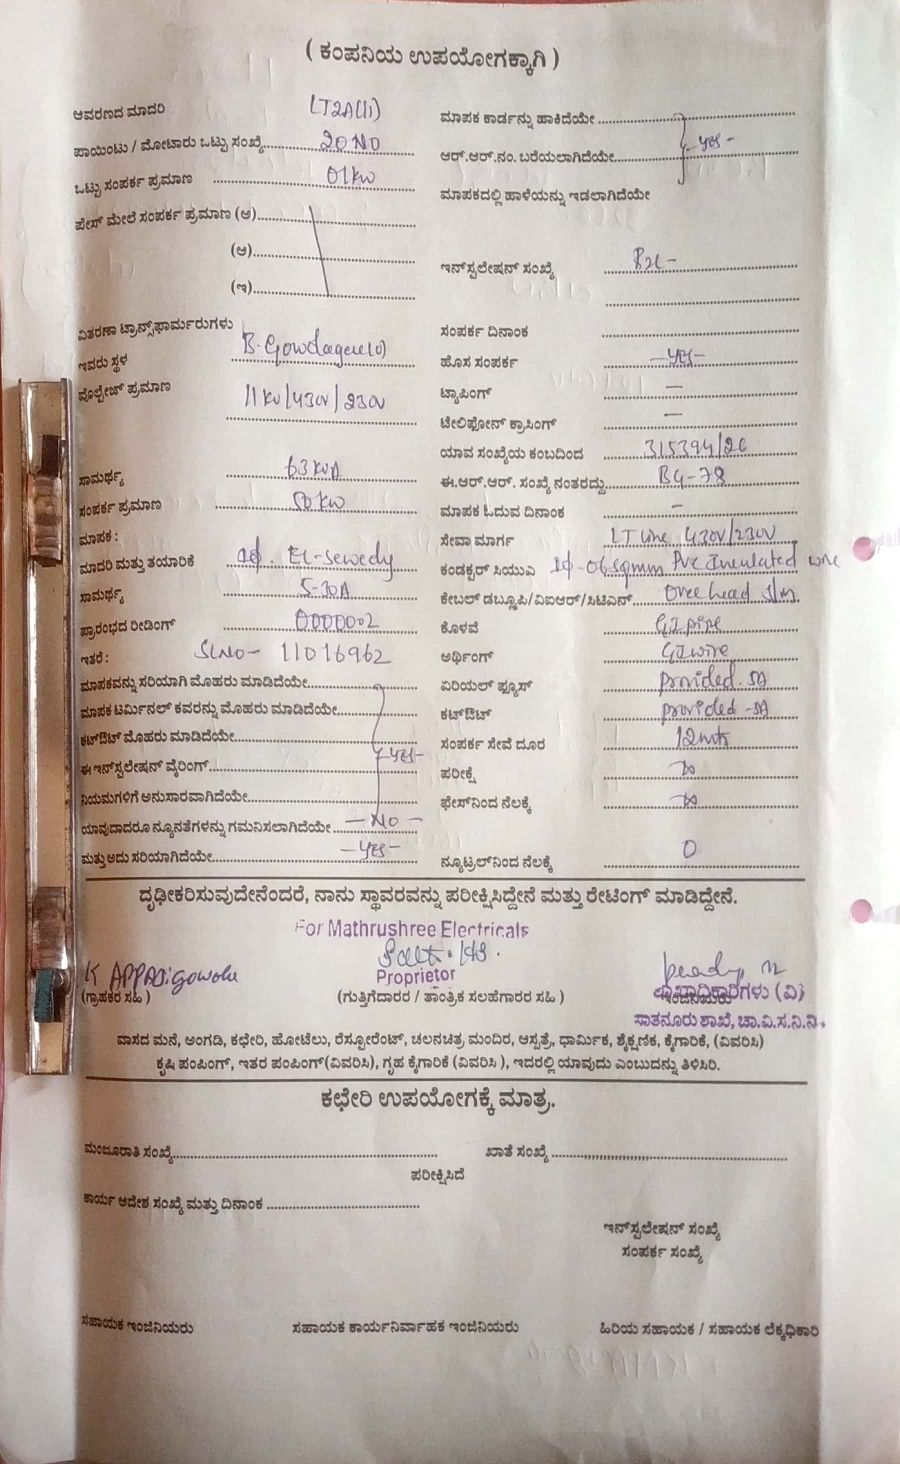 ( ಕಂಪನಿಯ ಉಪಯೋಗಕ್ಕಾಗಿ )
ಆವರಣದ ಮಾದರಿ LT2A(ii)
ಪಾಯಿಂಟು / ಮೋಟಾರು ಒಟ್ಟು ಸಂಖ್ಯೆ 20 NO
ಒಟ್ಟು ಸಂಪರ್ಕ ಪ್ರಮಾಣ 01KW
ಫೇಸ್ ಮೇಲೆ ಸಂಪರ್ಕ ಪ್ರಮಾಣ (ಅ)
(ಆ)
(ಇ)
ವಿತರಣಾ ಟ್ರಾನ್ಸ್‌ಫಾರ್ಮರುಗಳು
ಇವರು ಸ್ಥಳ B-Gowdagere
ವೊಲ್ಟೇಜ್ ಪ್ರಮಾಣ 11KV/430V/230V
ಸಾಮರ್ಥ್ಯ 63KVA
ಸಂಪರ್ಕ ಪ್ರಮಾಣ 50KW
ಮಾಪಕ :
ಮಾದರಿ ಮತ್ತು ತಯಾರಿಕೆ 1φ. EL-Sewedy
ಸಾಮರ್ಥ್ಯ 5-30A
ಪ್ರಾರಂಭದ ರೀಡಿಂಗ್ 0000002
ಇತರೆ : SLNO- 11016962
ಮಾಪಕವನ್ನು ಸರಿಯಾಗಿ ಮೊಹರು ಮಾಡಿದೆಯೇ
ಮಾಪಕ ಟರ್ಮಿನಲ್ ಕವರನ್ನು ಮೊಹರು ಮಾಡಿದೆಯೇ
ಕಟ್‌ಔಟ್ ಮೊಹರು ಮಾಡಿದೆಯೇ
ಈ ಇನ್‌ಸ್ಟಲೇಷನ್ ವೈರಿಂಗ್ -YES-
ನಿಯಮಗಳಿಗೆ ಅನುಸಾರವಾಗಿದೆಯೇ
ಯಾವುದಾದರೂ ನ್ಯೂನತೆಗಳನ್ನು ಗಮನಿಸಲಾಗಿದೆಯೇ - NO -
ಮತ್ತು ಅದು ಸರಿಯಾಗಿದೆಯೇ -YES-
ಮಾಪಕ ಕಾರ್ಡನ್ನು ಹಾಕಿದೆಯೇ
ಆರ್.ಆರ್.ನಂ. ಬರೆಯಲಾಗಿದೆಯೇ -YES-
ಮಾಪಕದಲ್ಲಿ ಹಾಳೆಯನ್ನು ಇಡಲಾಗಿದೆಯೇ
ಇನ್‌ಸ್ಟಲೇಷನ್ ಸಂಖ್ಯೆ
ಸಂಪರ್ಕ ದಿನಾಂಕ
ಹೊಸ ಸಂಪರ್ಕ -YES-
ಟ್ಯಾಪಿಂಗ್ -
ಟೇಲಿಫೋನ್ ಕ್ರಾಸಿಂಗ್ -
ಯಾವ ಸಂಖ್ಯೆಯ ಕಂಬದಿಂದ 315394/26
ಈ.ಆರ್.ಆರ್. ಸಂಖ್ಯೆ ನಂತರದ್ದು BG-78
ಮಾಪಕ ಓದುವ ದಿನಾಂಕ -
ಸೇವಾ ಮಾರ್ಗ LT Line 430V/230V
ಕಂಡಕ್ಟರ್ ಸಿಯುವಿ 1φ-06 sqmm PVC Insulated wire
ಕೇಬಲ್ ಡಬ್ಲ್ಯೂಪಿ/ವಿಐಆರ್/ಸಿಟಿಎನ್ Over head S/M
ಕೊಳವೆ GI pipe
ಅರ್ಥಿಂಗ್ GI wire
ಏರಿಯಲ್ ಫ್ಯೂಸ್ provided-5A
ಕಟ್‌ಔಟ್ provided-5A
ಸಂಪರ್ಕ ಸೇವೆ ದೂರ 12mts
ಪರೀಕ್ಷೆ ∞
ಫೇಸ್‌ನಿಂದ ನೆಲಕ್ಕೆ ∞
ನ್ಯೂಟ್ರಲ್‌ನಿಂದ ನೆಲಕ್ಕೆ 0
ದೃಢೀಕರಿಸುವುದೇನೆಂದರೆ, ನಾನು ಸ್ಥಾವರವನ್ನು ಪರೀಕ್ಷಿಸಿದ್ದೇನೆ ಮತ್ತು ರೇಟಿಂಗ್ ಮಾಡಿದ್ದೇನೆ.
For Mathrushree Electricals
Proprietor
K APPAJi gowda
(ಗ್ರಾಹಕರ ಸಹಿ )
(ಗುತ್ತಿಗೆದಾರರ / ತಾಂತ್ರಿಕ ಸಲಹೆಗಾರರ ಸಹಿ )
ಶಾಖಾಧಿಕಾರಿಗಳು (ವಿ)
ಸಾತನೂರು ಶಾಖೆ, ಚಾ.ವಿ.ಸ.ನಿ.ನಿ.
ವಾಸದ ಮನೆ, ಅಂಗಡಿ, ಕಛೇರಿ, ಹೋಟೆಲು, ರೆಸ್ಟೋರೆಂಟ್, ಚಲನಚಿತ್ರ ಮಂದಿರ, ಆಸ್ಪತ್ರೆ, ಧಾರ್ಮಿಕ, ಶೈಕ್ಷಣಿಕ, ಕೈಗಾರಿಕೆ, (ವಿವರಿಸಿ)
ಕೃಷಿ ಪಂಪಿಂಗ್, ಇತರ ಪಂಪಿಂಗ್(ವಿವರಿಸಿ), ಗೃಹ ಕೈಗಾರಿಕೆ (ವಿವರಿಸಿ ), ಇದರಲ್ಲಿ ಯಾವುದು ಎಂಬುದನ್ನು ತಿಳಿಸಿರಿ.
ಕಛೇರಿ ಉಪಯೋಗಕ್ಕೆ ಮಾತ್ರ.
ಮಂಜೂರಾತಿ ಸಂಖ್ಯೆ ಖಾತೆ ಸಂಖ್ಯೆ
ಪರೀಕ್ಷಿಸಿದೆ
ಕಾರ್ಯ ಆದೇಶ ಸಂಖ್ಯೆ ಮತ್ತು ದಿನಾಂಕ
ಇನ್‌ಸ್ಟಲೇಷನ್ ಸಂಖ್ಯೆ
ಸಂಪರ್ಕ ಸಂಖ್ಯೆ
ಸಹಾಯಕ ಇಂಜಿನಿಯರು ಸಹಾಯಕ ಕಾರ್ಯನಿರ್ವಾಹಕ ಇಂಜಿನಿಯರು ಹಿರಿಯ ಸಹಾಯಕ / ಸಹಾಯಕ ಲೆಕ್ಕಧಿಕಾರಿ